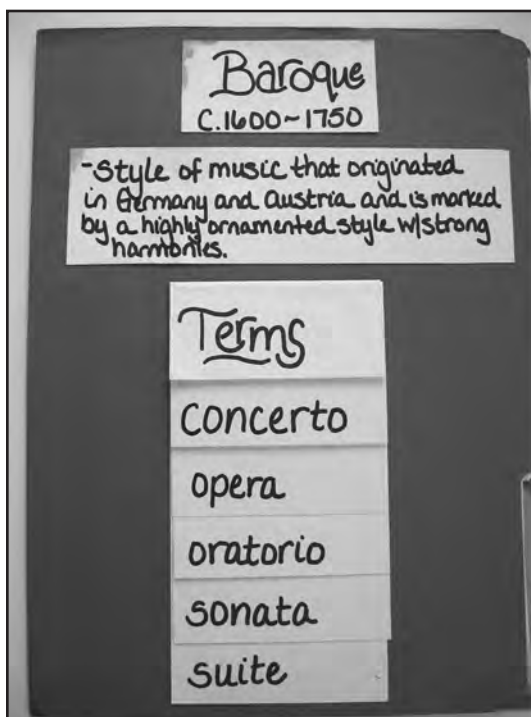 Baroque
C.1600~1750
-Style of music that originated
in Germany and Austria and is marked
by a highly ornamented style w/strong
harmonies.
Terms
concerto
opera
oratorio
sonata
suite